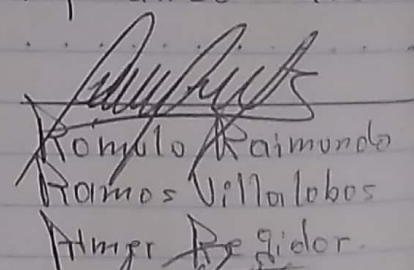 Rómulo Raimundo
Ramos Villalobos
Primer Regidor.